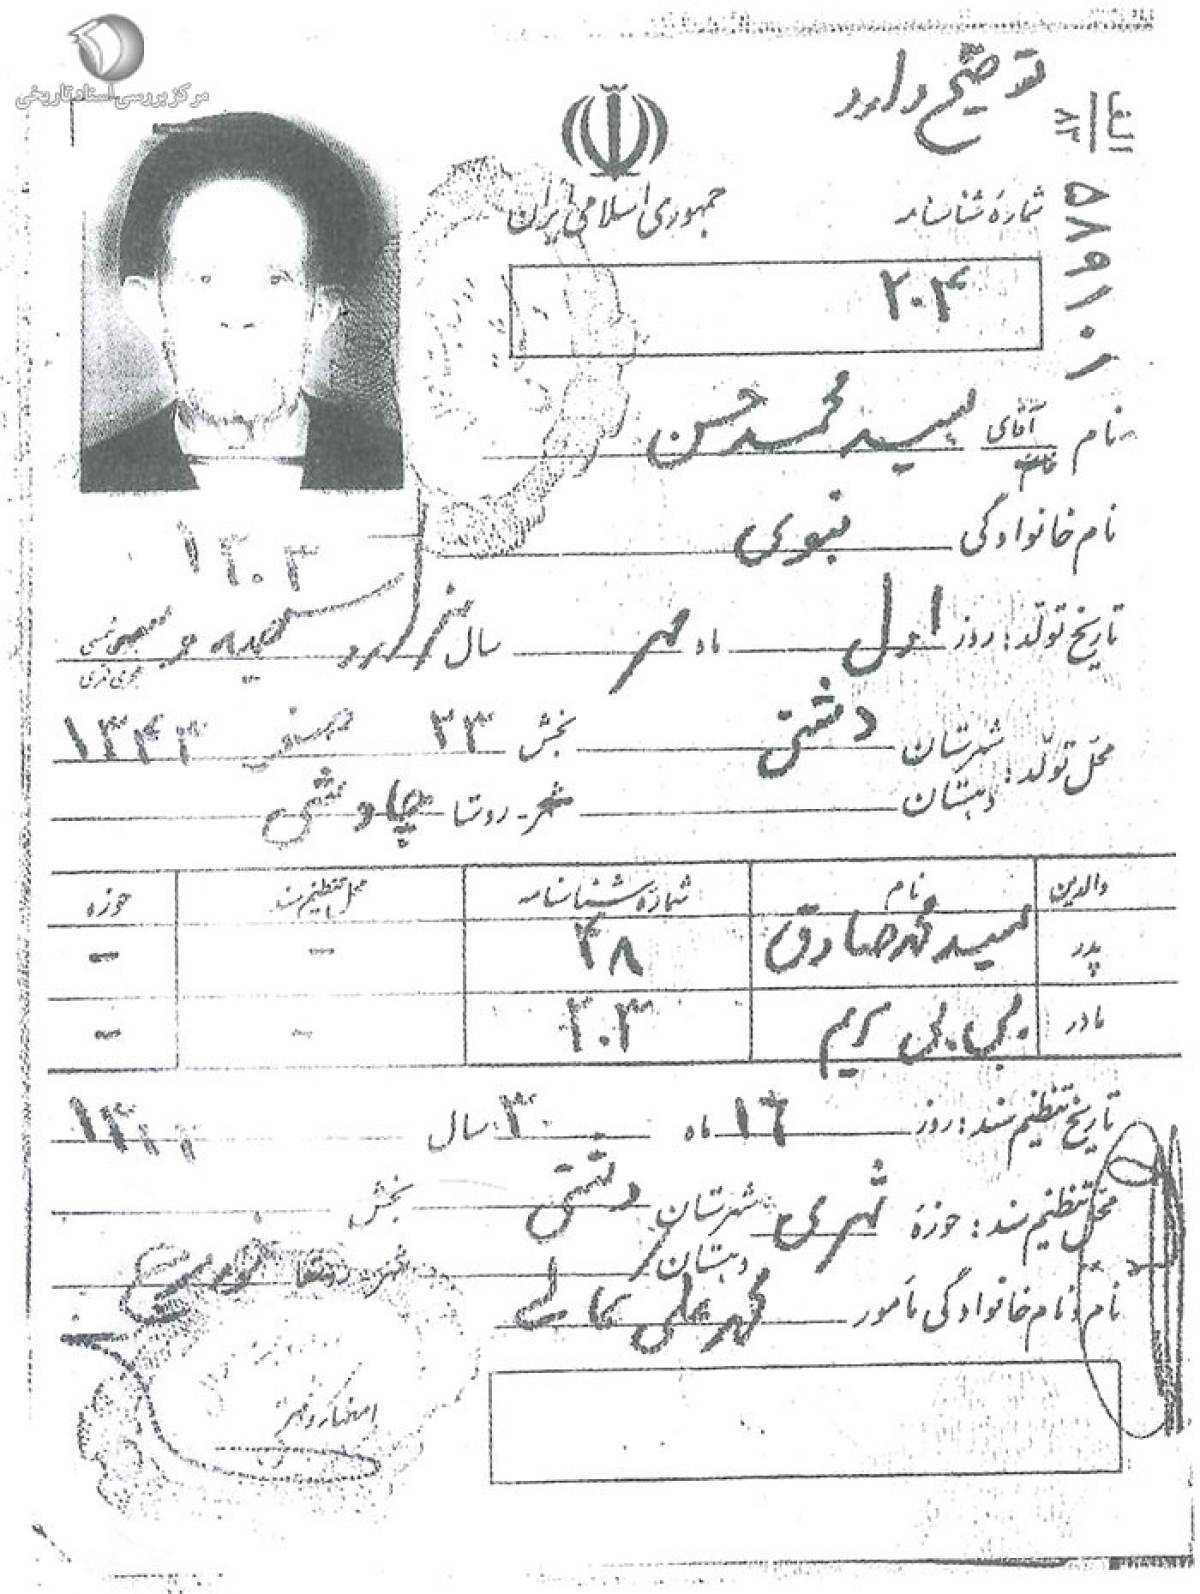 مرکز بررسی اسناد تاریخی
توضیح دارد
الف
۸۳
۵۸۹۱۰۱
جمهوری اسلامی ایران
شماره شناسنامه
۲۰۴
نام آقای خانم سید محمد حسن
نام خانوادگی نبوی
۱۳۰۳
تاریخ تولد: روز اول ماه مهر سال هزار و سیصد و سه هجری شمسی
هجری قمری
محل تولد: شهرستان دشتی بخش ۲۳ صفر ۱۳۴۳
دهستان شهر - روستا چاوشی
والدین نام شماره شناسنامه محل تنظیم سند حوزه
پدر سید محمد صادق ۴۸ - -
مادر بی بی مریم ۲۰۳ - -
تاریخ تنظیم سند: روز ۱۶ ماه ۳۰ سال
محل تنظیم سند: حوزه شهری شهرستان دشتی بخش
دهستان شهر - روستا خورموج
نام و نام خانوادگی مأمور محمد علی
امضاء و مهر